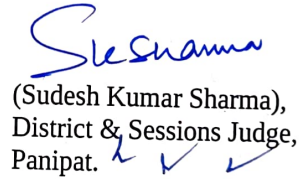 Sksharma
(Sudesh Kumar Sharma),
District & Sessions Judge,
Panipat.